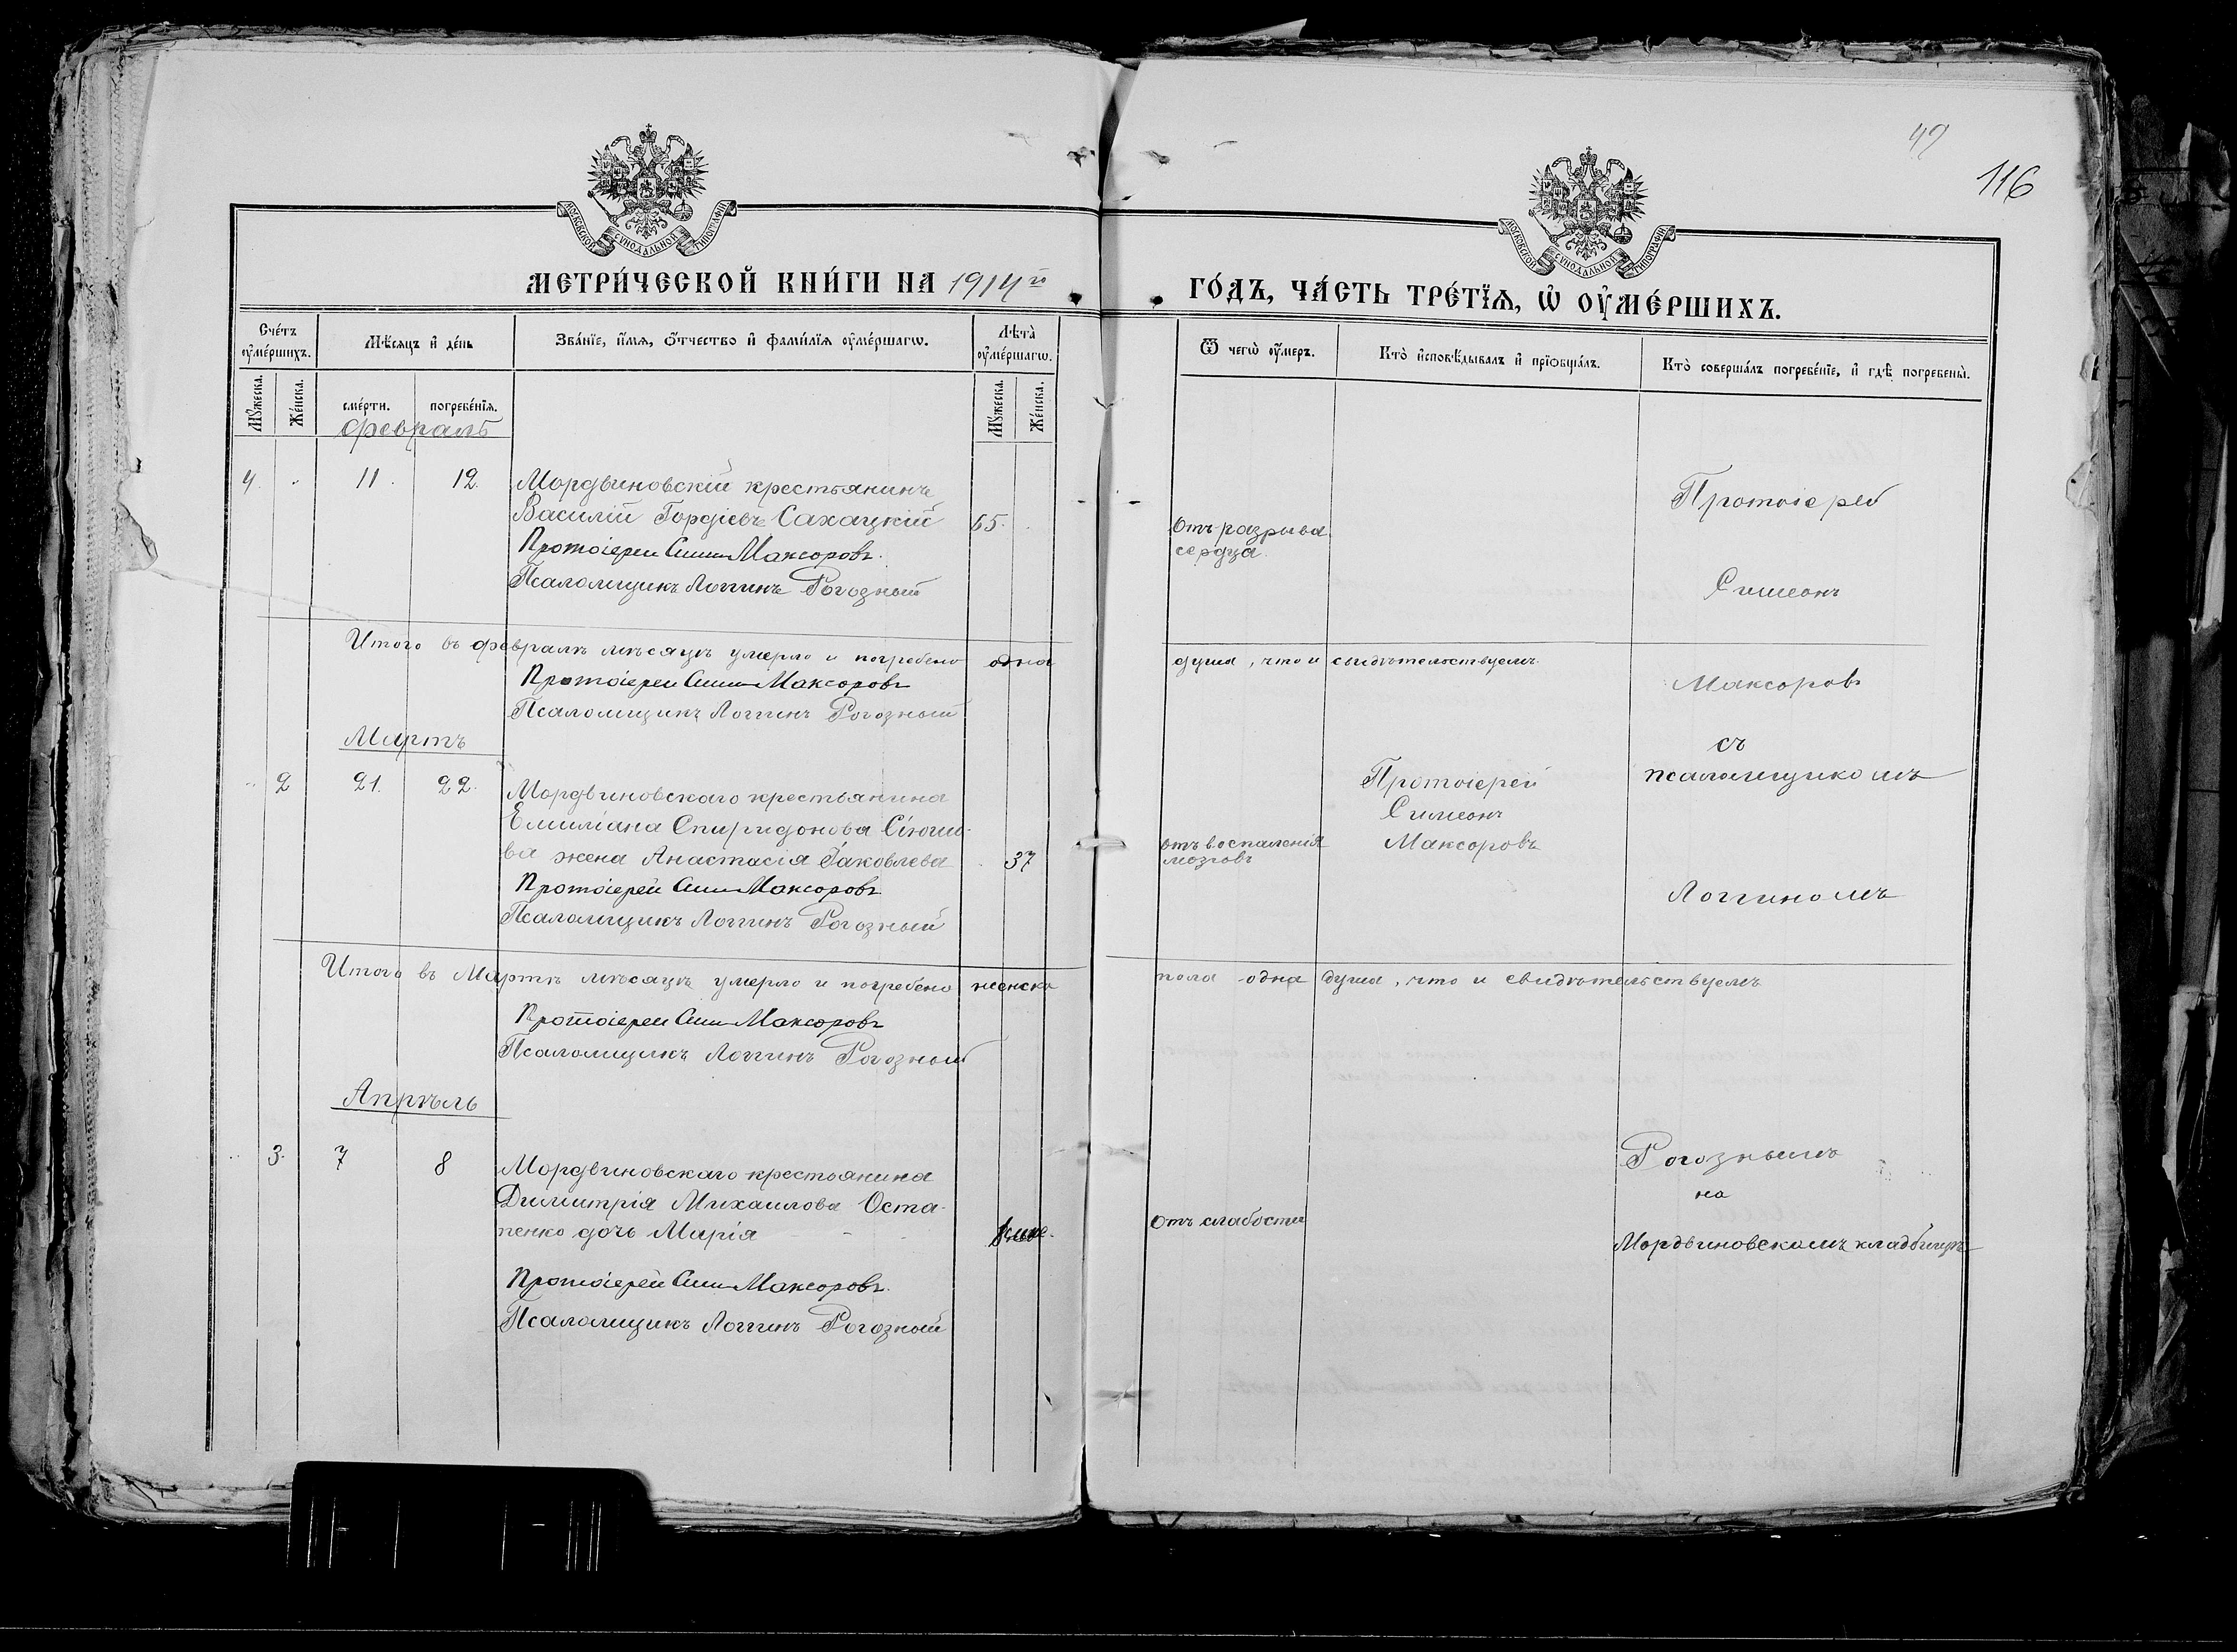 49
116
МОСКОВСКОЙ СУНОДАЛЬНОЙ ТИПОГРАФІИ
МОСКОВСКОЙ СУНОДАЛЬНОЙ ТИПОГРАФІИ
МЕТРИ́ЧЕСКОЙ КНИ́ГИ НА 1914й
ГО́ДЪ, ЧА́СТЬ ТРЕ́ТЇѦ, Ѡ҆ ОУ҆МЕ́РШИХЪ.
Сче́тъ оу҆ме́ршихъ.
Мѣ́сѧцъ и҆ де́нь
Зва́нїе, и҆́мѧ, ѻ҆́тчество и҆ фами́лїѧ оу҆ме́ршагѡ.
Лѣ́та̀ оу҆ме́ршагѡ.
Ѿ чегѡ̀ оу҆́меръ.
Кто̀ и҆сповѣ́дывалъ и҆ прїѡбща́лъ.
Кто̀ соверша́лъ погребе́нїе, и҆ гдѣ̀ погребены̀.
Мꙋ́жеска.
Же́нска.
сме́рти.
погребе́нїѧ.
Мꙋ́жеска.
Же́нска.
Февраль
4. 11. 12. Мордвиновскій крестьянинъ
Василій Гордіевъ Сахацкій 65.
Протоіерей Сим Максоровъ.
Псаломщикъ Логгинъ Рогозный
отъ разрыва
сердца.
Протоіерей
Симеонъ
Итого въ февралѣ мѣсяцѣ умерло и погребено одна душа, что и свидѣтельствуемъ.
Протоіерей Сим Максоровъ
Псаломщикъ Логгинъ Рогозный
Максоровъ
Мартъ
съ
2 21. 22. Мордвиновскаго крестьянина
Емиліана Спиридонова
ва жена Анастасія Іаковлева 37
Протоіерей Сим Максоровъ
Псаломщикъ Логгинъ Рогозный
отъ воспаленія
мозговъ
Протоіерей
Симеонъ
Максоровъ
псаломщикомъ
Логгиномъ
Итого въ Мартѣ мѣсяцѣ умерло и погребено женска пола одна душа, что и свидѣтельствуемъ
Протоіерей Сим Максоровъ
Псаломщикъ Логгинъ Рогозный
Апрѣль
3. 7 8 Мордвиновскаго крестьянина
Димитрія Михаилова Оста-
пенко дочь Марія
Протоіерей Сим Максоровъ.
Псаломщикъ Логгинъ Рогозный
отъ слабости
Рогознымъ
на
Мордвиновскомъ кладбищѣ